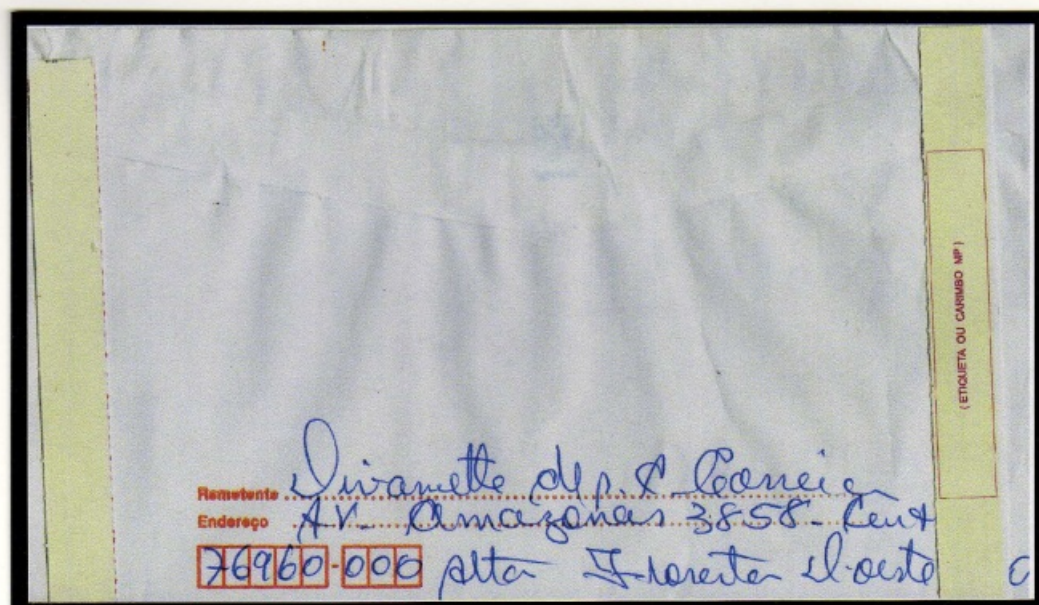 (ETIQUETA OU CARIMBO MP)
Remetente Divanette Ap. C. Correia
Endereço AV. Amazonas 3858 - Cent
76960-000 Alta Floresta D'oeste